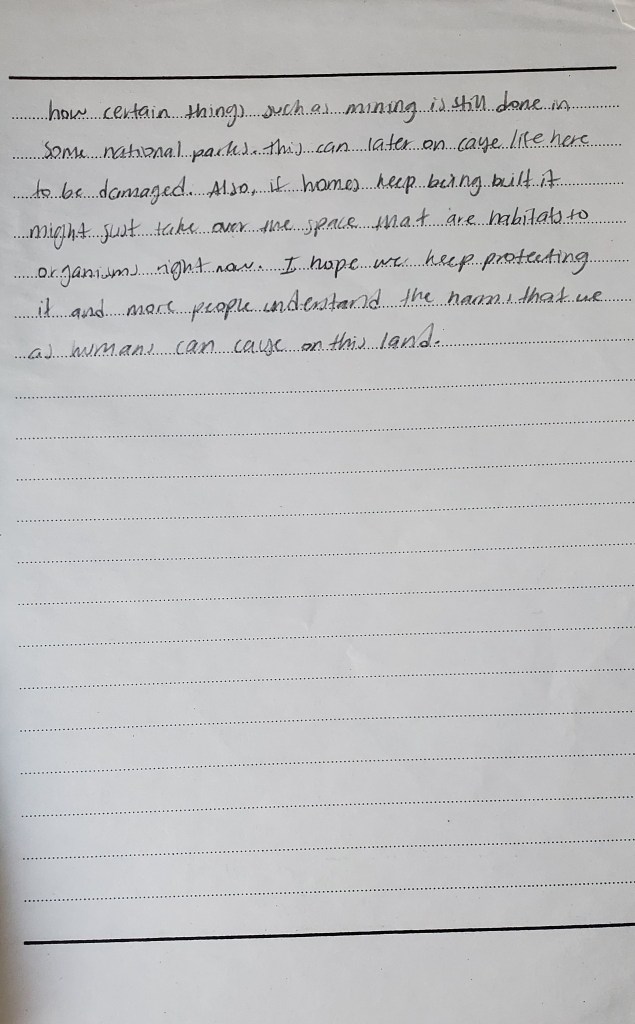 how certain things such as mining is still done in
some national parks. this can later on cause life here
to be damaged. Also, if homes keep being built it
might just take over the space that are habitats to
organisms right now. I hope we keep protecting
it and more people understand the harms that we
as humans can cause on this land.